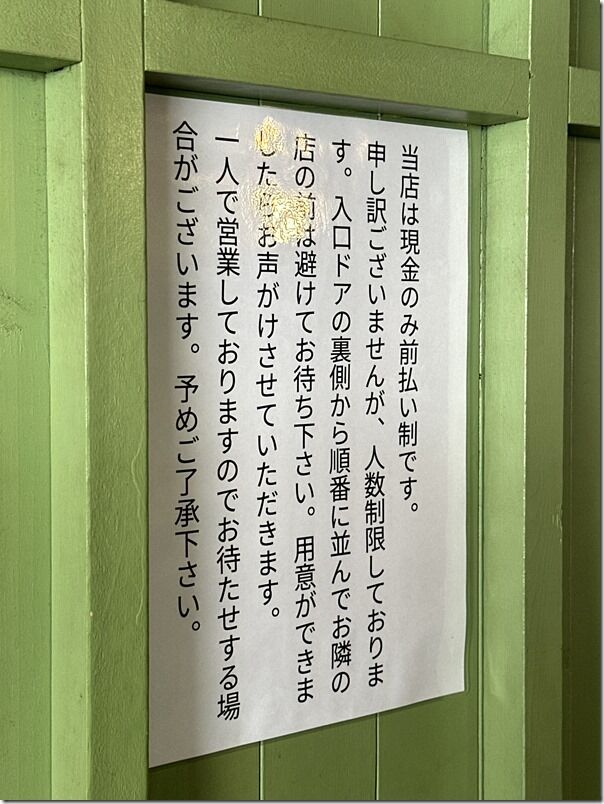 当店は現金のみ前払い制です。
申し訳ございませんが、人数制限しておりま
す。入口ドアの裏側から順番に並んでお隣の
店の前は避けてお待ち下さい。用意ができま
したらお声がけさせていただきます。
一人で営業しておりますのでお待たせする場
合がございます。予めご了承下さい。